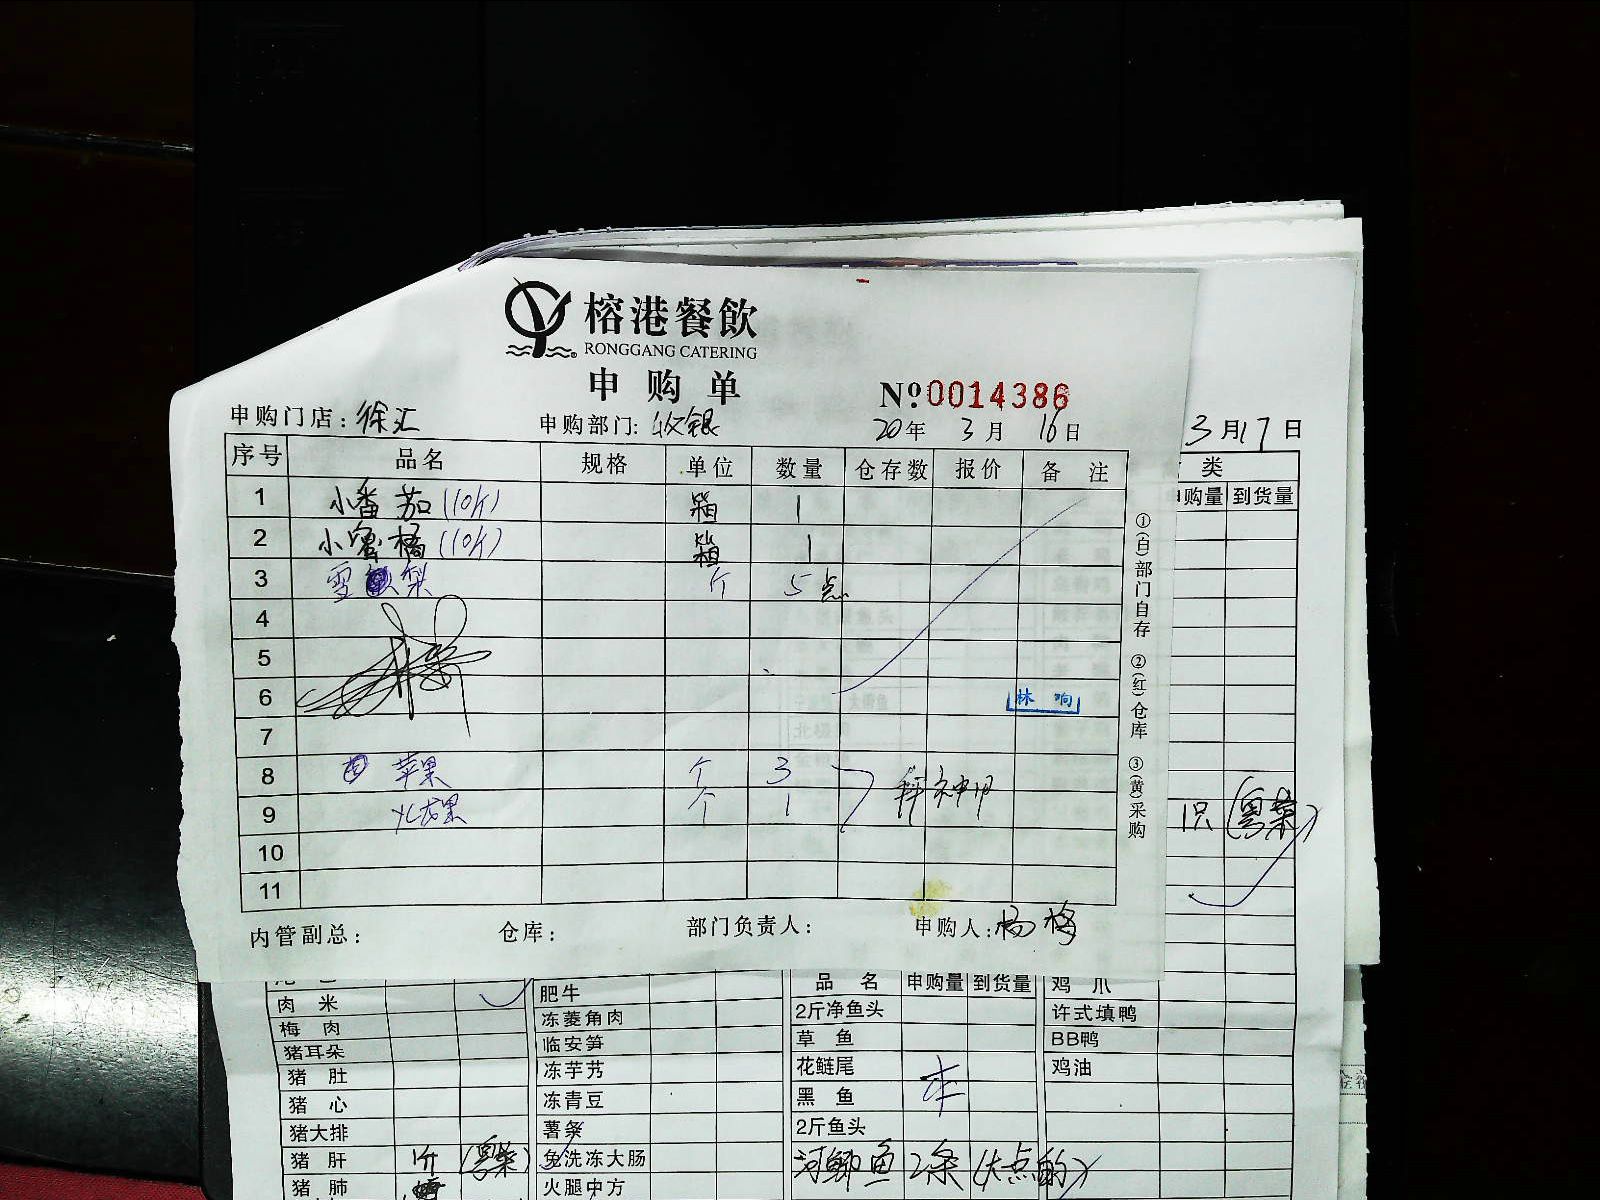 榕港餐飲
RONGGANG CATERING
申购单
Nº0014386
申购门店：徐汇 申购部门：收银 20年 3月 16日
3月17日
序号 品名 规格 单位 数量 仓存数 报价 备 注
类
申购量 到货量
1 小番茄(10斤) 箱 1
2 小蜜橘(10斤) 箱 1
3 雪梨 个 5点
4
5
6 林 响
7
8 苹果 个 3
9 火龙果 个 1
拜神用
1只(粤菜)
10
11
①(白)部门自存 ②(红)仓库 ③(黄)采购
内管副总： 仓库： 部门负责人： 申购人：杨梅
品 名 申购量 到货量 鸡 爪
肉 米 肥牛 2斤净鱼头 许式填鸭
梅 肉 冻菱角肉 草 鱼 BB鸭
猪耳朵 临安笋 花鲢尾 鸡油
猪 肚 冻芋艿 黑 鱼
猪 心 冻青豆 2斤鱼头
猪大排 薯条
猪 肝 (粤菜) 免洗冻大肠 河鲫鱼 2条 (大点的)
猪 肺 火腿中方